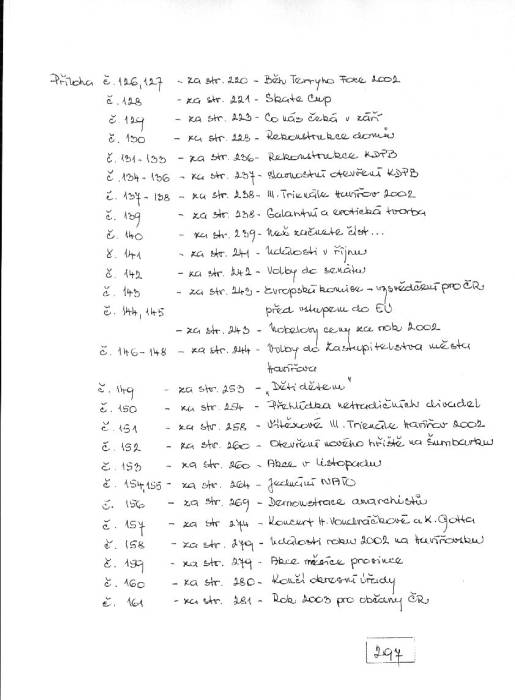 Příloha č. 126,127 - za str. 220 - Běh Terryho Foxe 2002
č. 128 - za str. 221 - Skate Cup
č. 129 - za str. 223 - Co nás čeká v září
č. 130 - za str. 228 - Rekonstrukce domů
č. 131-133 - za str. 236 - Rekonstrukce KDPB
č. 134-136 - za str. 237 - slavnostní otevření KDPB
č. 137-138 - za str. 238 - III. Trienále Havířov 2002
č. 139 - za str. 238 - Galantní a erotická tvorba
č. 140 - za str. 239 - Než začnete číst...
č. 141 - za str. 241 - Události v říjnu
č. 142 - za str. 242 - Volby do senátu
č. 143 - za str. 243 - Evropská komise - vysvědčení pro ČR
č. 144, 145 před vstupem do EU
- za str. 243 - Nobelovy ceny za rok 2002
č. 146-148 - za str. 244 - Volby do Zastupitelstva města
Havířova
č. 149 - za str. 253 - „Děti dětem"
č. 150 - za str. 254 - Přehlídka netradičních divadel
č. 151 - za str. 258 - Vítězové III. Trienále Havířov 2002
č. 152 - za str. 260 - Otevření nového hřiště na Šumbarku
č. 153 - za str. 260 - Akce v listopadu
č. 154,155 - za str. 264 - Jednání NATO
č. 156 - za str. 269 - Demonstrace anarchistů
č. 157 - za str. 274 - Koncert H. Vondráčkové a K. Gotta
č. 158 - za str. 279 - Události roku 2002 na Havířovsku
č. 159 - za str. 279 - Akce měsíce prosince
č. 160 - za str. 280 - Končí okresní úřady
č. 161 - za str. 281 - Rok 2003 pro občany ČR
297